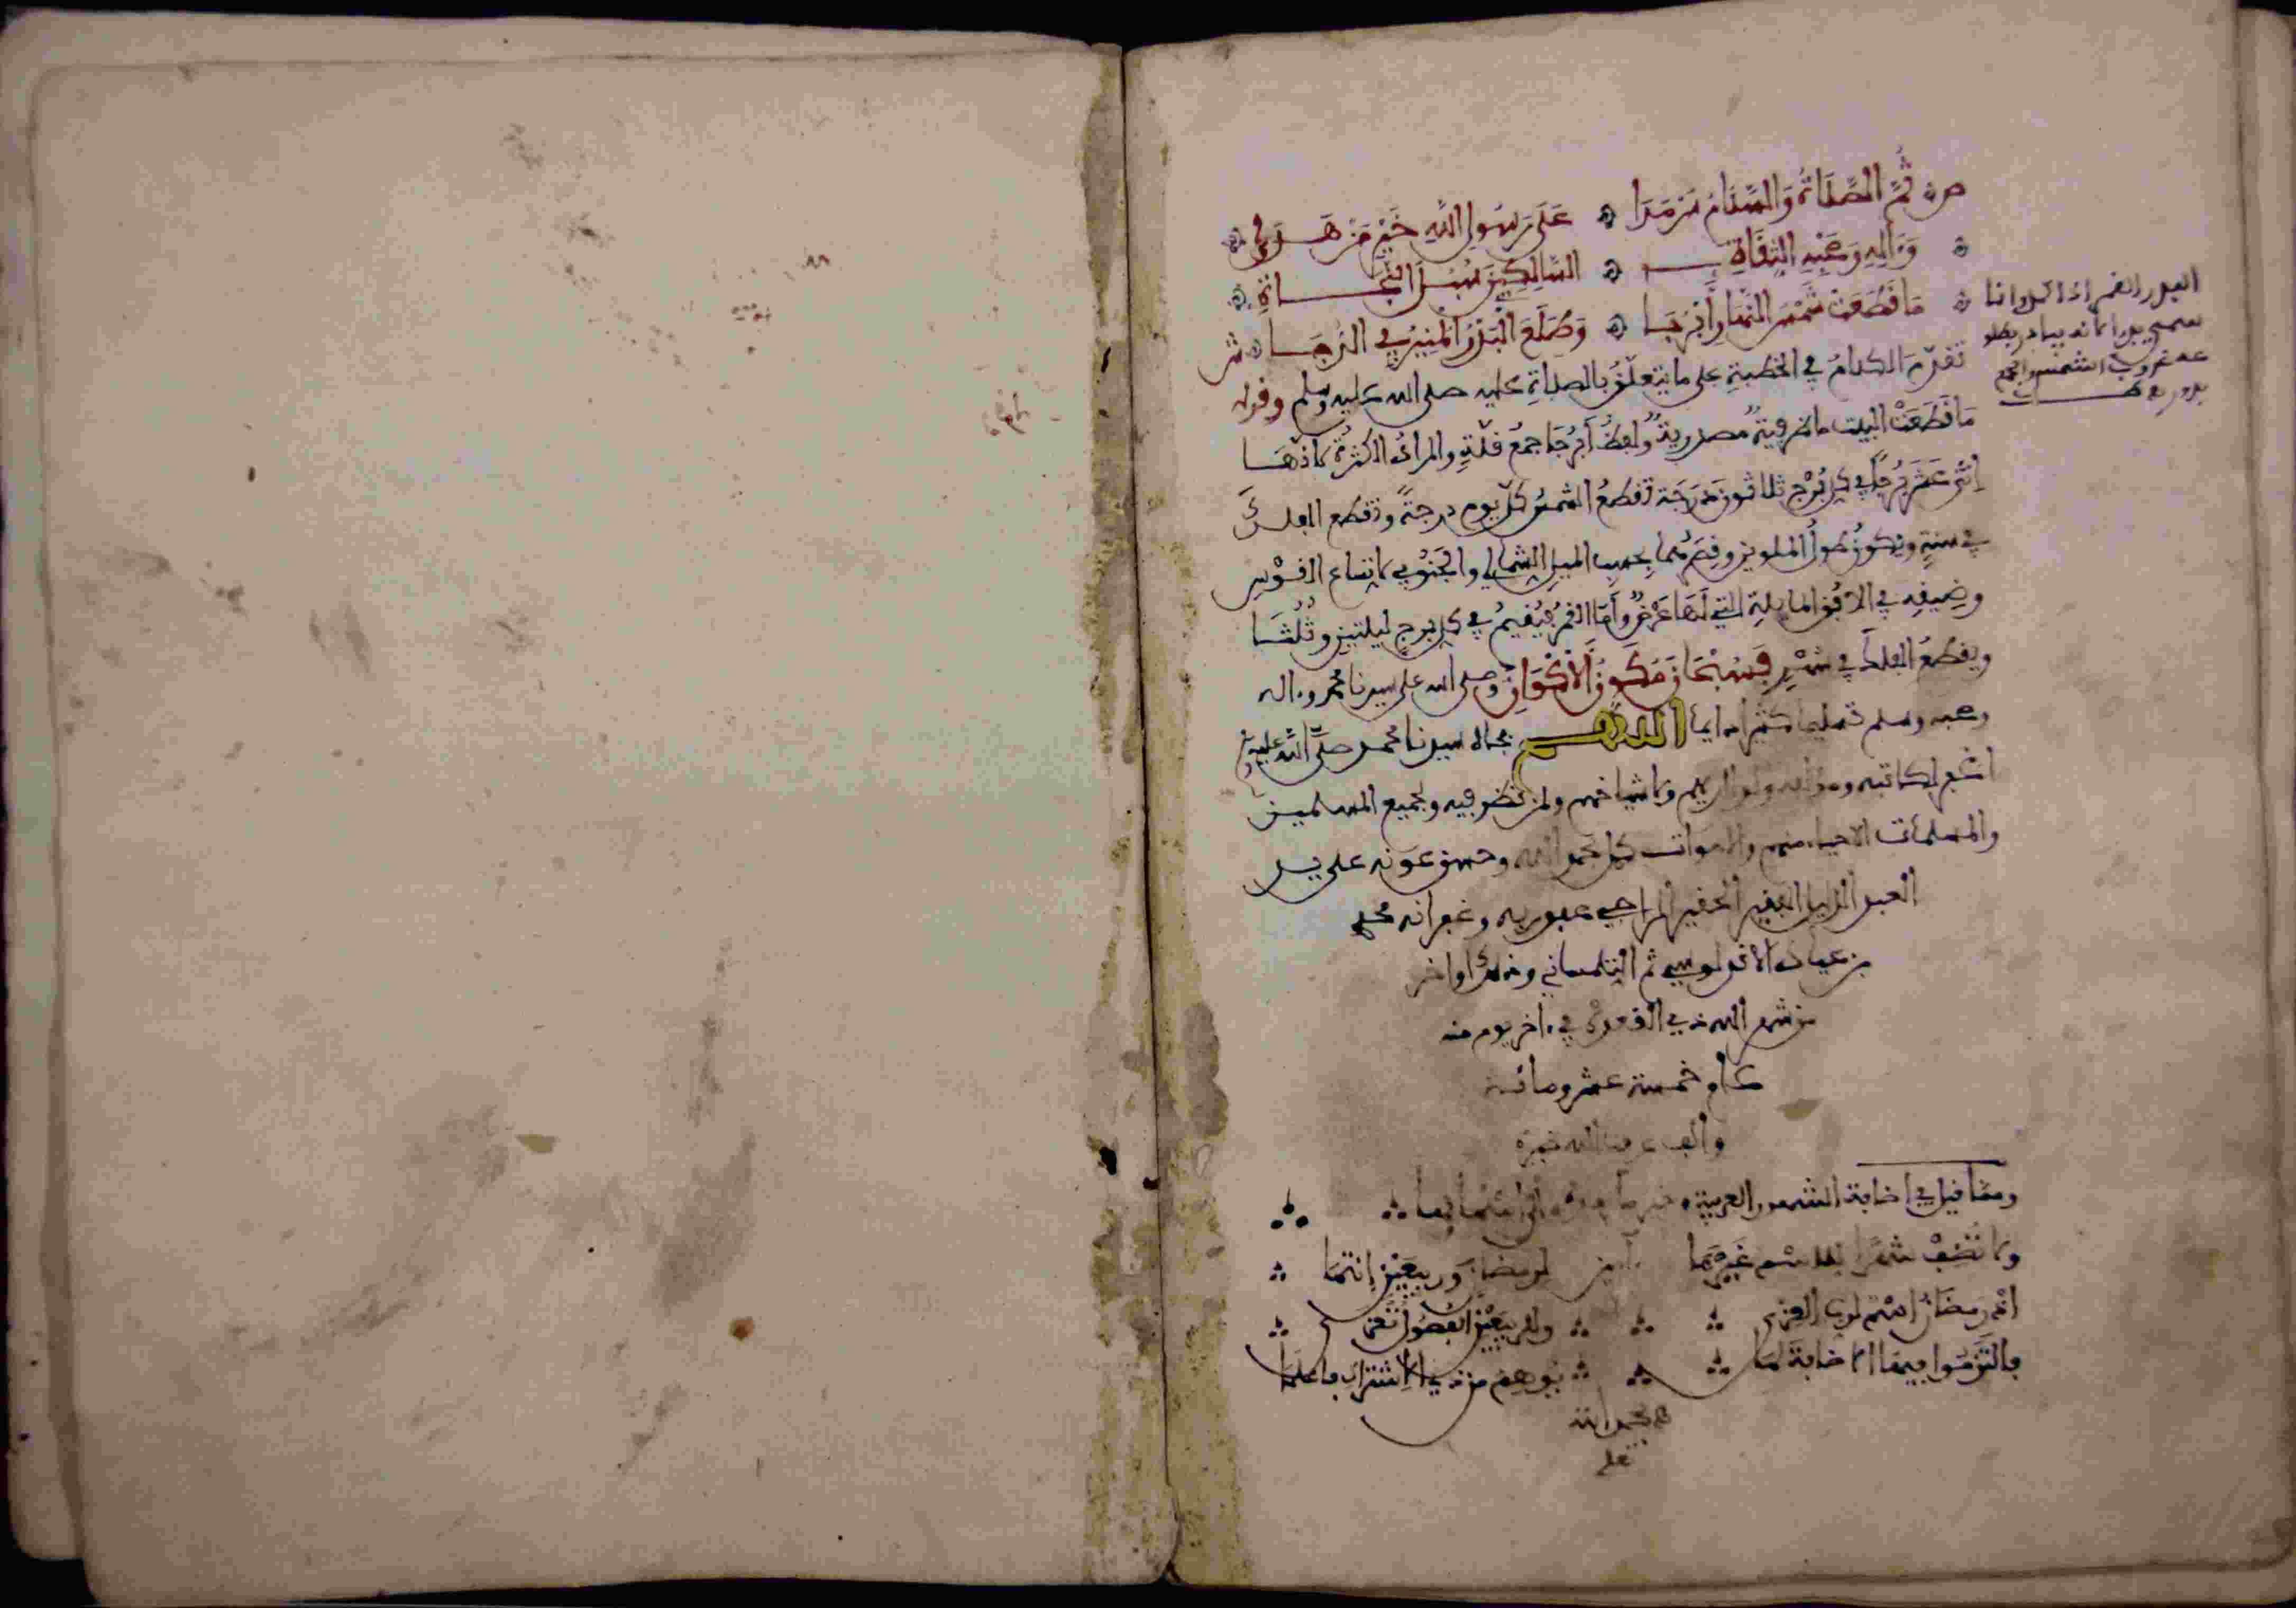 ص ثُمَّ الصَّلَاةُ وَالسَّلَامُ سَرْمَدَا عَلَى رَسُولِ اللَّهِ خَيْرِ مَنْ هَدَى
وَءَالِهِ وَصَحْبِهِ الثِّقَاةِ السَّالِكِينَ سُبُلَ النَّجَاةِ
مَا قَطَعَتْ شَمْسُ النَّهَارِ أَبْرُجَا وَطَلَعَ الْبَدْرُ الْمُنِيرُ فِي الدُّجَا ش
تقدّم الكلامُ في الخطبةِ على ما يتعلّقُ بالصلاةِ عليه صلى الله عليه وسلم وقوله
مَا قَطَعَتْ البيت ما ظرفيةٌ مصدريةٌ ولفظُ أَبْرُجَا جمعُ قلّةٍ والمرادُ الكثرةُ لأنّهَا
اثنَى عَشَرَ بُرْجًا في كل بُرْجٍ ثلاثونَ دَرَجَة تقطعُ الشمسُ كلّ يومٍ درجةً وتقطع الفلكَ
في سنةٍ ويكونُ طولُ الملوين وقِصَرُهما بحسبِ الميلِ الشمالي والجَنُوبي لاتساع القوْسِ
وضِيقِه في الأفُقِ المايلةِ التي لَهَا عَرْضٌ وأمّا القمرُ فيُقيمُ في كل برجٍ ليلتين وثُلُثَا
ويقطعُ الفلكَ في شهْرٍ فَسُبْحَانَ مُكَوِّنِ الْأَكْوَانِ وصلى الله على سيدنا محمد وءاله
وصحبه وسلم تسليما كثيرا دايما اللهم بجاه سيدنا محمد صلَّى اللَّه عليه و
اغفر لكاتبه ومؤلفه ولوالديهم ولأشياخهم ولمن نظر فيه ولجميع المسلمين
والمسلمات الاحياء منهم والاموات كمل بحمد الله وحسن عونه على يد
العبد الذليل الفقير الحقير الراجي عفو ربه وغفرانه محمد
بن عياد الاندلوسي ثم التلمساني وذلك اواخر
من شهر الله ذي القعدة في ءاخر يوم منه
عام خمسة عشر ومائة
والف عرفنا الله خيره
البدر القمر اذا كمل وانما
سمي بدرا لأنه يبادر بطلو
عه غروب الشمس والجمع
بدور
ومما قيل في اضافة الشهور العربية
ولا تُضِفْ شهرًا للاسْمِ غَيْرَمَا لرمضان وربيعَيْنِ إنتمَا
لأن رمضان اسْم لرب العزة والربيعَيْنِ الفصُولُ تعمّ
فالتَزَمُوا فيها الاضافة لمَا يُوهِمُ من ذي الاشتراك فاعلمَا
بحمد الله
تعلى